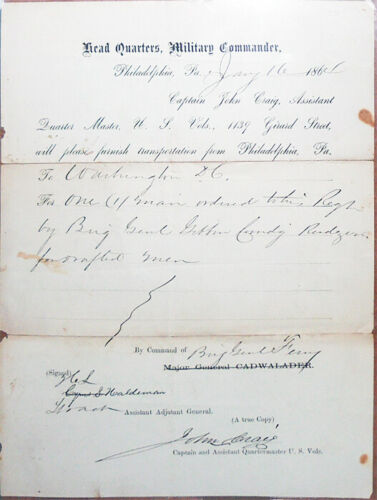 Head Quarters, Military Commander,
Philadelphia, Pa., Jany 16 1864
Captain John Craig, Assistant
Quarter Master, U. S. Vols., 1139 Girard Street,
will please furnish transportation from Philadelphia, Pa.
To Washington D.C.
For One (1) man ordered to his Regt
by Brig Genl
for drafted men
By Command of Brig Genl Ferry
Major General CADWALADER.
(Signed)
Cyrus S Haldeman
Assistant Adjutant General.
(A true Copy)
John Craig
Captain and Assistant Quartermaster U. S. Vols.